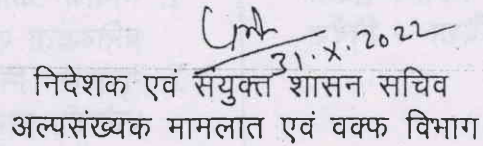 31.X.2022
निदेशक एवं संयुक्त शासन सचिव
अल्पसंख्यक मामलात एवं वक्फ विभाग